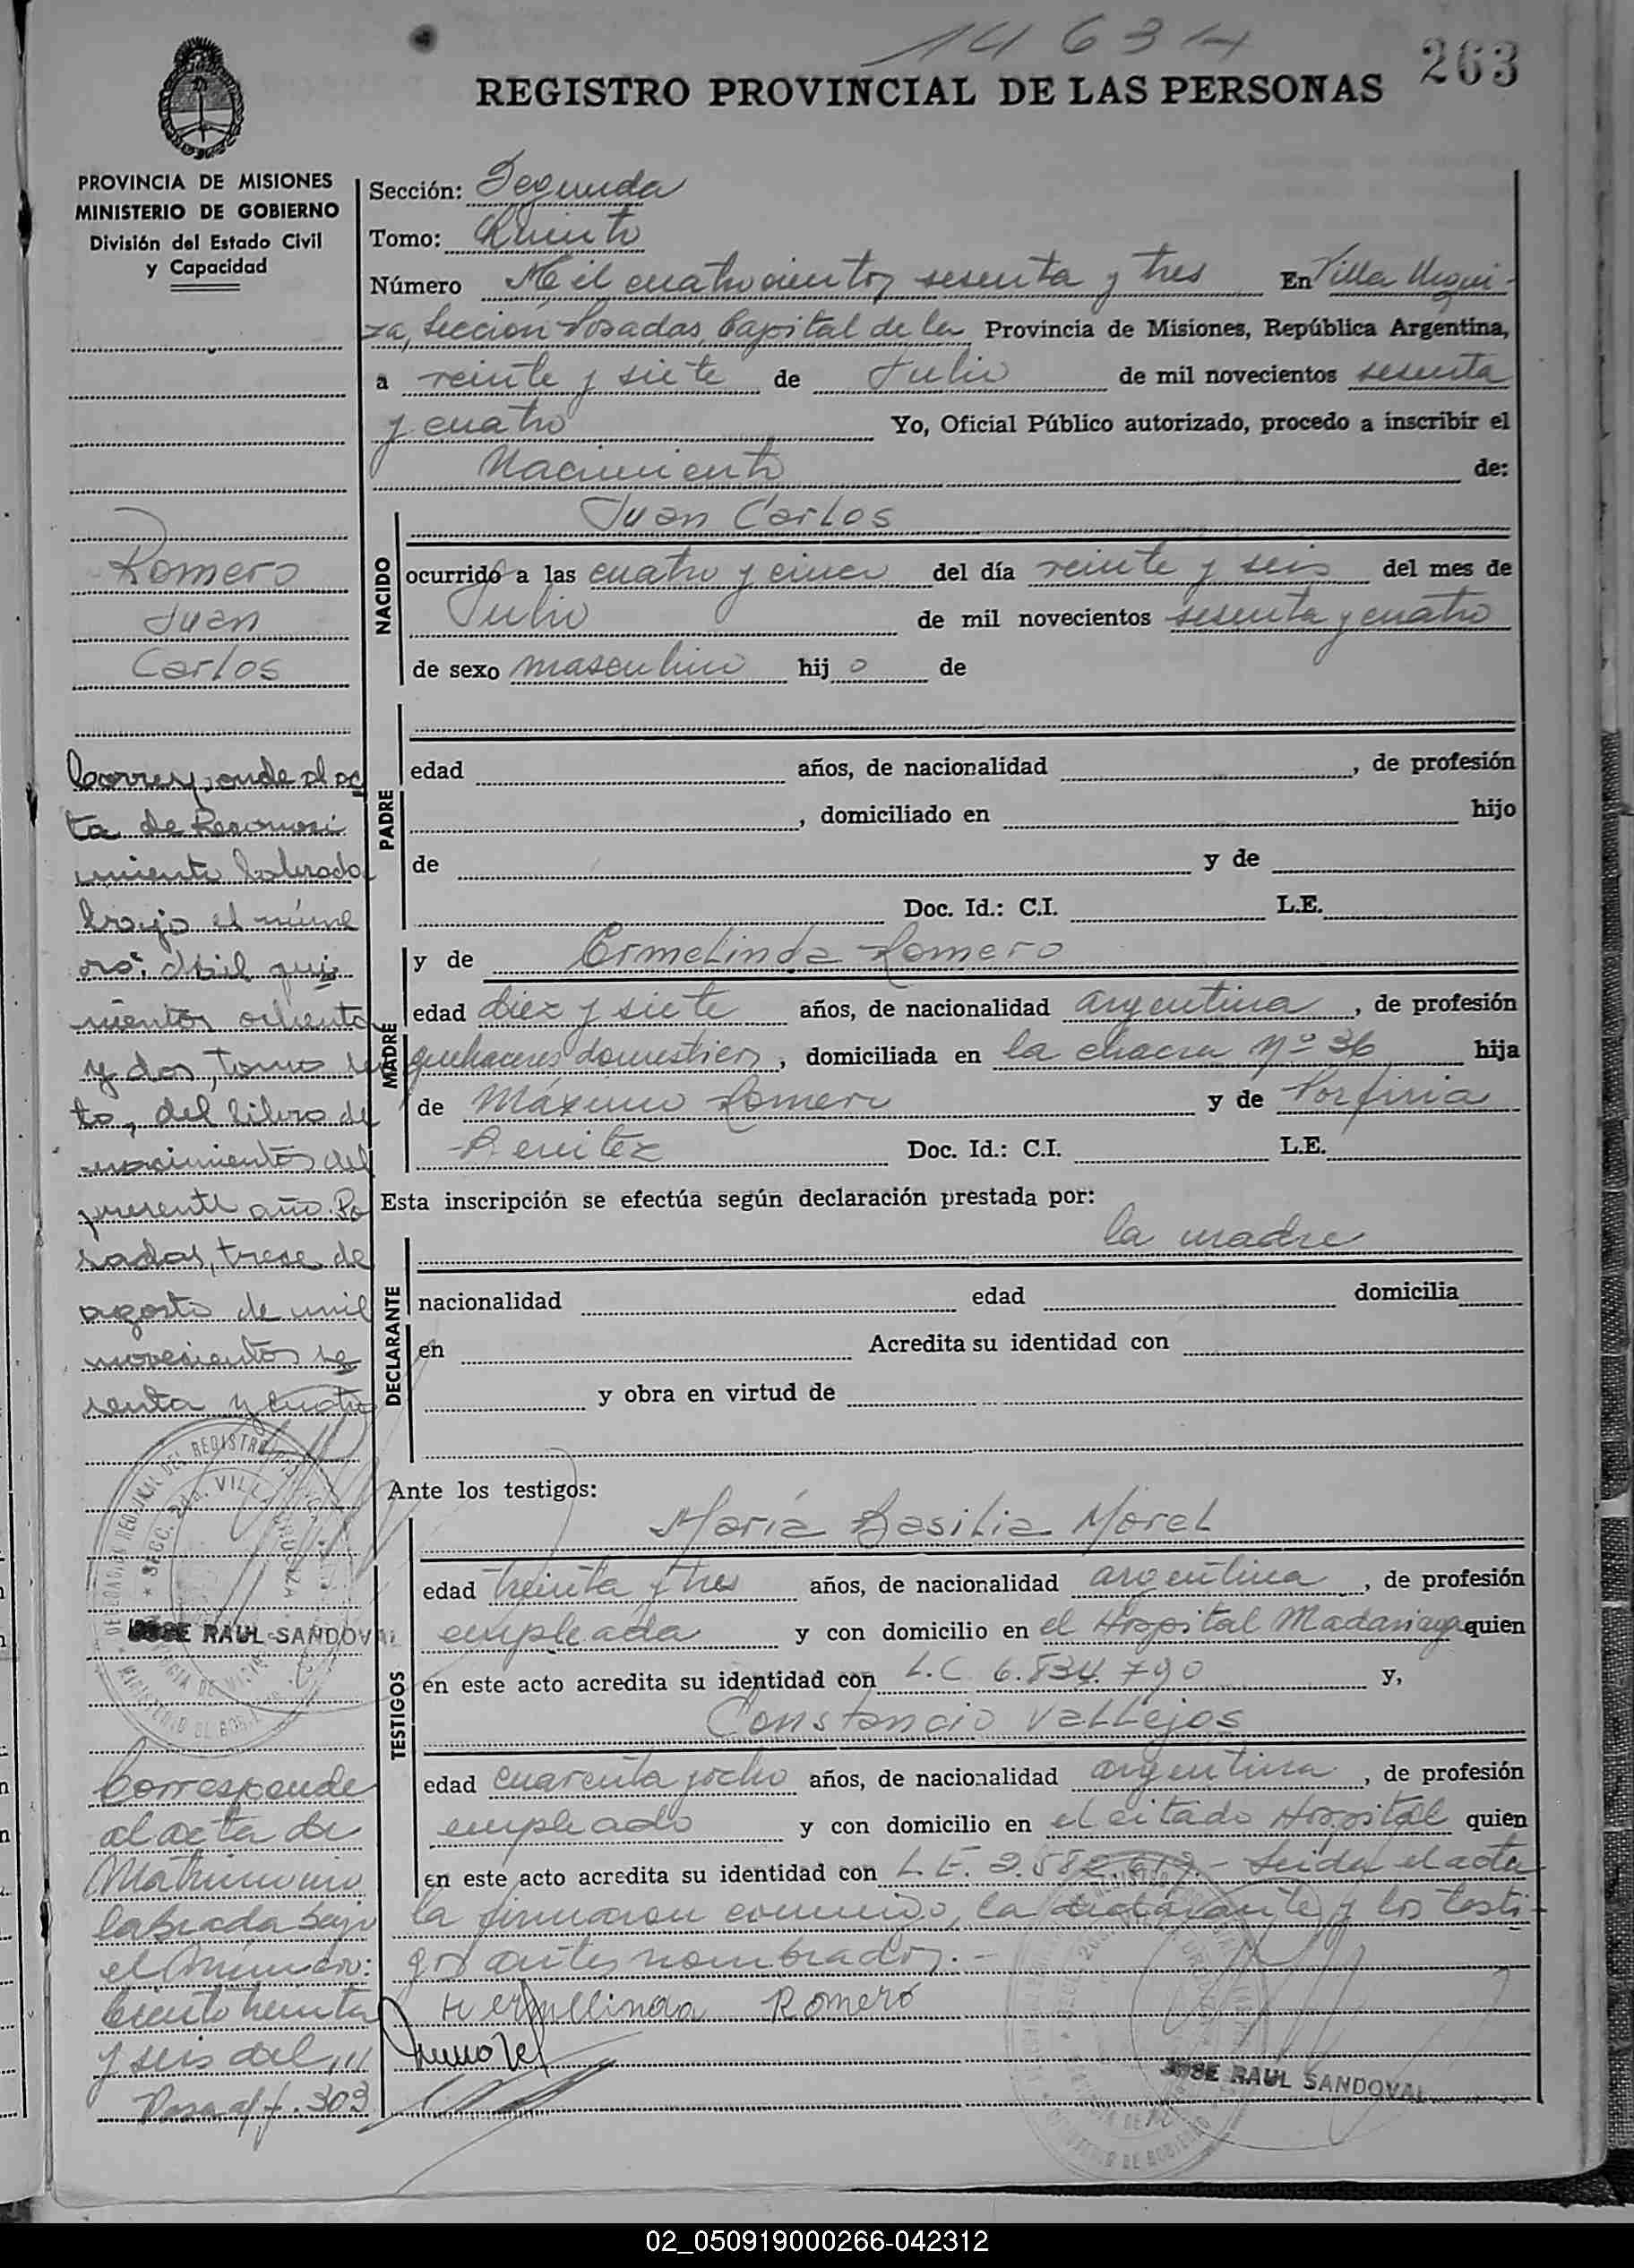 263
REGISTRO PROVINCIAL DE LAS PERSONAS
PROVINCIA DE MISIONES
MINISTERIO DE GOBIERNO
División del Estado Civil
y Capacidad
Romero
Juan
Carlos
Corresponde al ac
ta de Reconosi
miento labrado
bajo el núme
ro: Mil qui
nientos ochenta
y dos, tomo
to, del libro de
nacimientos del
presente año. Po
sadas, trece de
agosto de mil
novecientos se
senta y cuatro
JOSE RAUL SANDOVAL
Corresponde
al acta de
Matrimonio
labrada bajo
el número:
Ciento treinta
y seis del
Pasa a f. 303
Sección: Segunda
Tomo: Quinto
Número Mil cuatrocientos sesenta y tres En Villa Urqui-
za, Sección Posadas, Capital de la Provincia de Misiones, República Argentina,
a veinte y siete de Julio de mil novecientos sesenta
y cuatro Yo, Oficial Público autorizado, procedo a inscribir el
Nacimiento de:
NACIDO
Juan Carlos
ocurrido a las cuatro y cinco del día veinte y seis del mes de
Julio de mil novecientos sesenta y cuatro
de sexo masculino hij o de
PADRE
edad años, de nacionalidad , de profesión
, domiciliado en hijo
de y de
Doc. Id.: C.I. L.E.
MADRE
y de Ermelinda Romero
edad diez y siete años, de nacionalidad argentina, de profesión
quehaceres domesticos, domiciliada en la chacra Nº 36 hija
de Máximo Romero y de Porfiria
Benitez Doc. Id.: C.I. L.E.
Esta inscripción se efectúa según declaración prestada por:
la madre
DECLARANTE
nacionalidad edad domicilia
en Acredita su identidad con
y obra en virtud de
Ante los testigos:
TESTIGOS
María Basilia Morel
edad treinta y tres años, de nacionalidad argentina, de profesión
empleada y con domicilio en el Hospital Madariaga quien
en este acto acredita su identidad con L.C. 6.834.790 y,
Constancio Vallejos
edad cuarenta y ocho años, de nacionalidad argentina, de profesión
empleado y con domicilio en el citado Hospital quien
en este acto acredita su identidad con L.E. - Leida el acta
la firmaron conmigo, la declarante y los testi-
gos antes nombrados.-
Hermelinda Romero
JOSE RAUL SANDOVAL
02_050919000266-042312